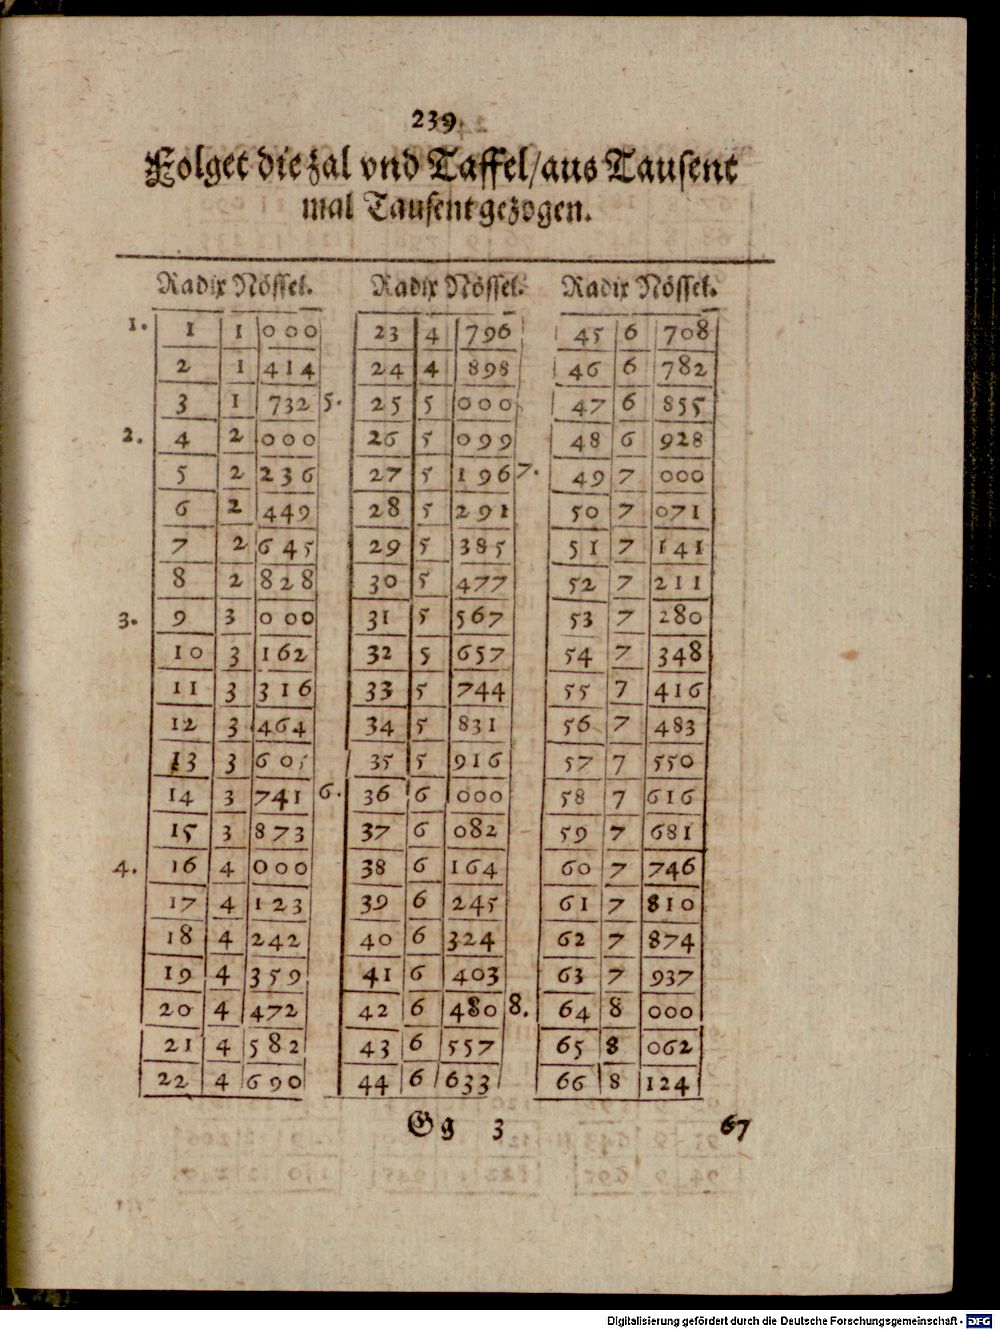 239.
Folget die zal vnd Taffel/aus Tausent
mal Tausent gezogen.
Radix Nössel. Radix Nössel. Radix Nössel.
1. 1 1 000 23 4 796 45 6 708
2 1 414 24 4 898 46 6 782
3 1 732 5. 25 5 000 47 6 855
2. 4 2 000 26 5 099 48 6 928
5 2 236 27 5 196 7. 49 7 000
6 2 449 28 5 291 50 7 071
7 2 645 29 5 385 51 7 141
8 2 828 30 5 477 52 7 211
3. 9 3 000 31 5 567 53 7 280
10 3 162 32 5 657 54 7 348
11 3 316 33 5 744 55 7 416
12 3 464 34 5 831 56 7 483
13 3 605 35 5 916 57 7 550
14 3 741 6. 36 6 000 58 7 616
15 3 873 37 6 082 59 7 681
4. 16 4 000 38 6 164 60 7 746
17 4 123 39 6 245 61 7 810
18 4 242 40 6 324 62 7 874
19 4 359 41 6 403 63 7 937
20 4 472 42 6 480 8. 64 8 000
21 4 582 43 6 557 65 8 062
22 4 690 44 6 633 66 8 124
Gg 3 67
Digitalisierung gefördert durch die Deutsche Forschungsgemeinschaft - DFG